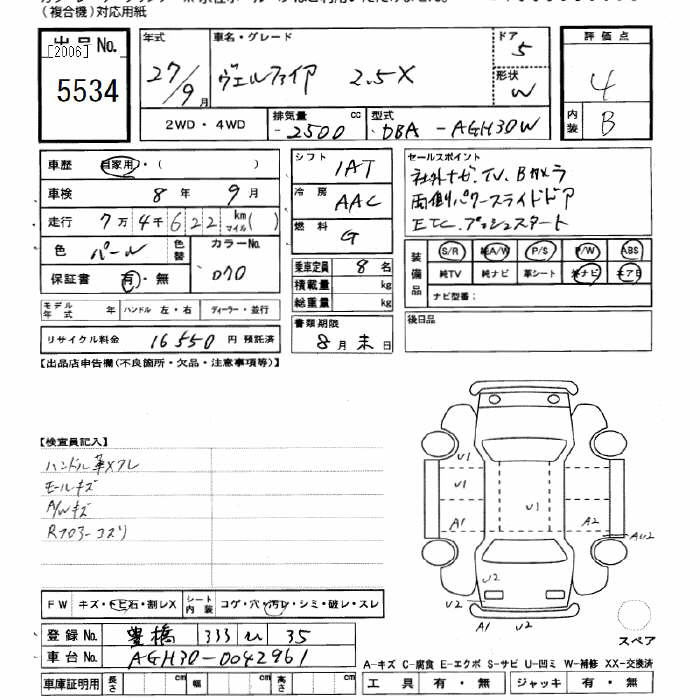 (複合機)対応用紙
出品No. [2006] 5534
年式 27/9月
車名・グレード ヴェルファイア 2.5X
ドア 5
形状 W
評価点 4
内装 B
2WD・4WD
排気量 2500 cc
型式 DBA-AGH30W
車歴 自家用・( )
車検 8年 9月
走行 7万4千622 km マイル( )
色 パール 色替 カラーNo. 070
保証書 有・無
モデル年式 年 ハンドル 左・右 ディーラー・並行
リサイクル料金 16550 円 預託済
シフト IAT
冷房 AAC
燃料 G
乗車定員 8名
積載量 kg
総重量 kg
書類期限 8月末日
セールスポイント
社外ナビ.TV.Bカメラ
両側パワースライドドア
ETC.プッシュスタート
装備品 S/R 純A/W P/S P/W ABS
純TV 純ナビ 革シート 社ナビ エアB
ナビ型番:
後日品
【出品店申告欄(不良箇所・欠品・注意事項等)】
【検査員記入】
ハンドル革スレ
モールキズ
A/Wキズ
Rフロアーコスリ
U1
U1
U1
A1
A2
AU2
U2
U2
A1
U2
スペア
FW キズ・トビ石・割レX
シート内装 コゲ・穴・汚レ・シミ・破レ・スレ
登録No. 豊橋 333 い 35
車台No. AGH30-0042961
車庫証明用 長さ cm 幅 cm 高さ cm
A-キズ C-腐食 E-エクボ S-サビ U-凹ミ W-補修 XX-交換済
工具 有・無 ジャッキ 有・無